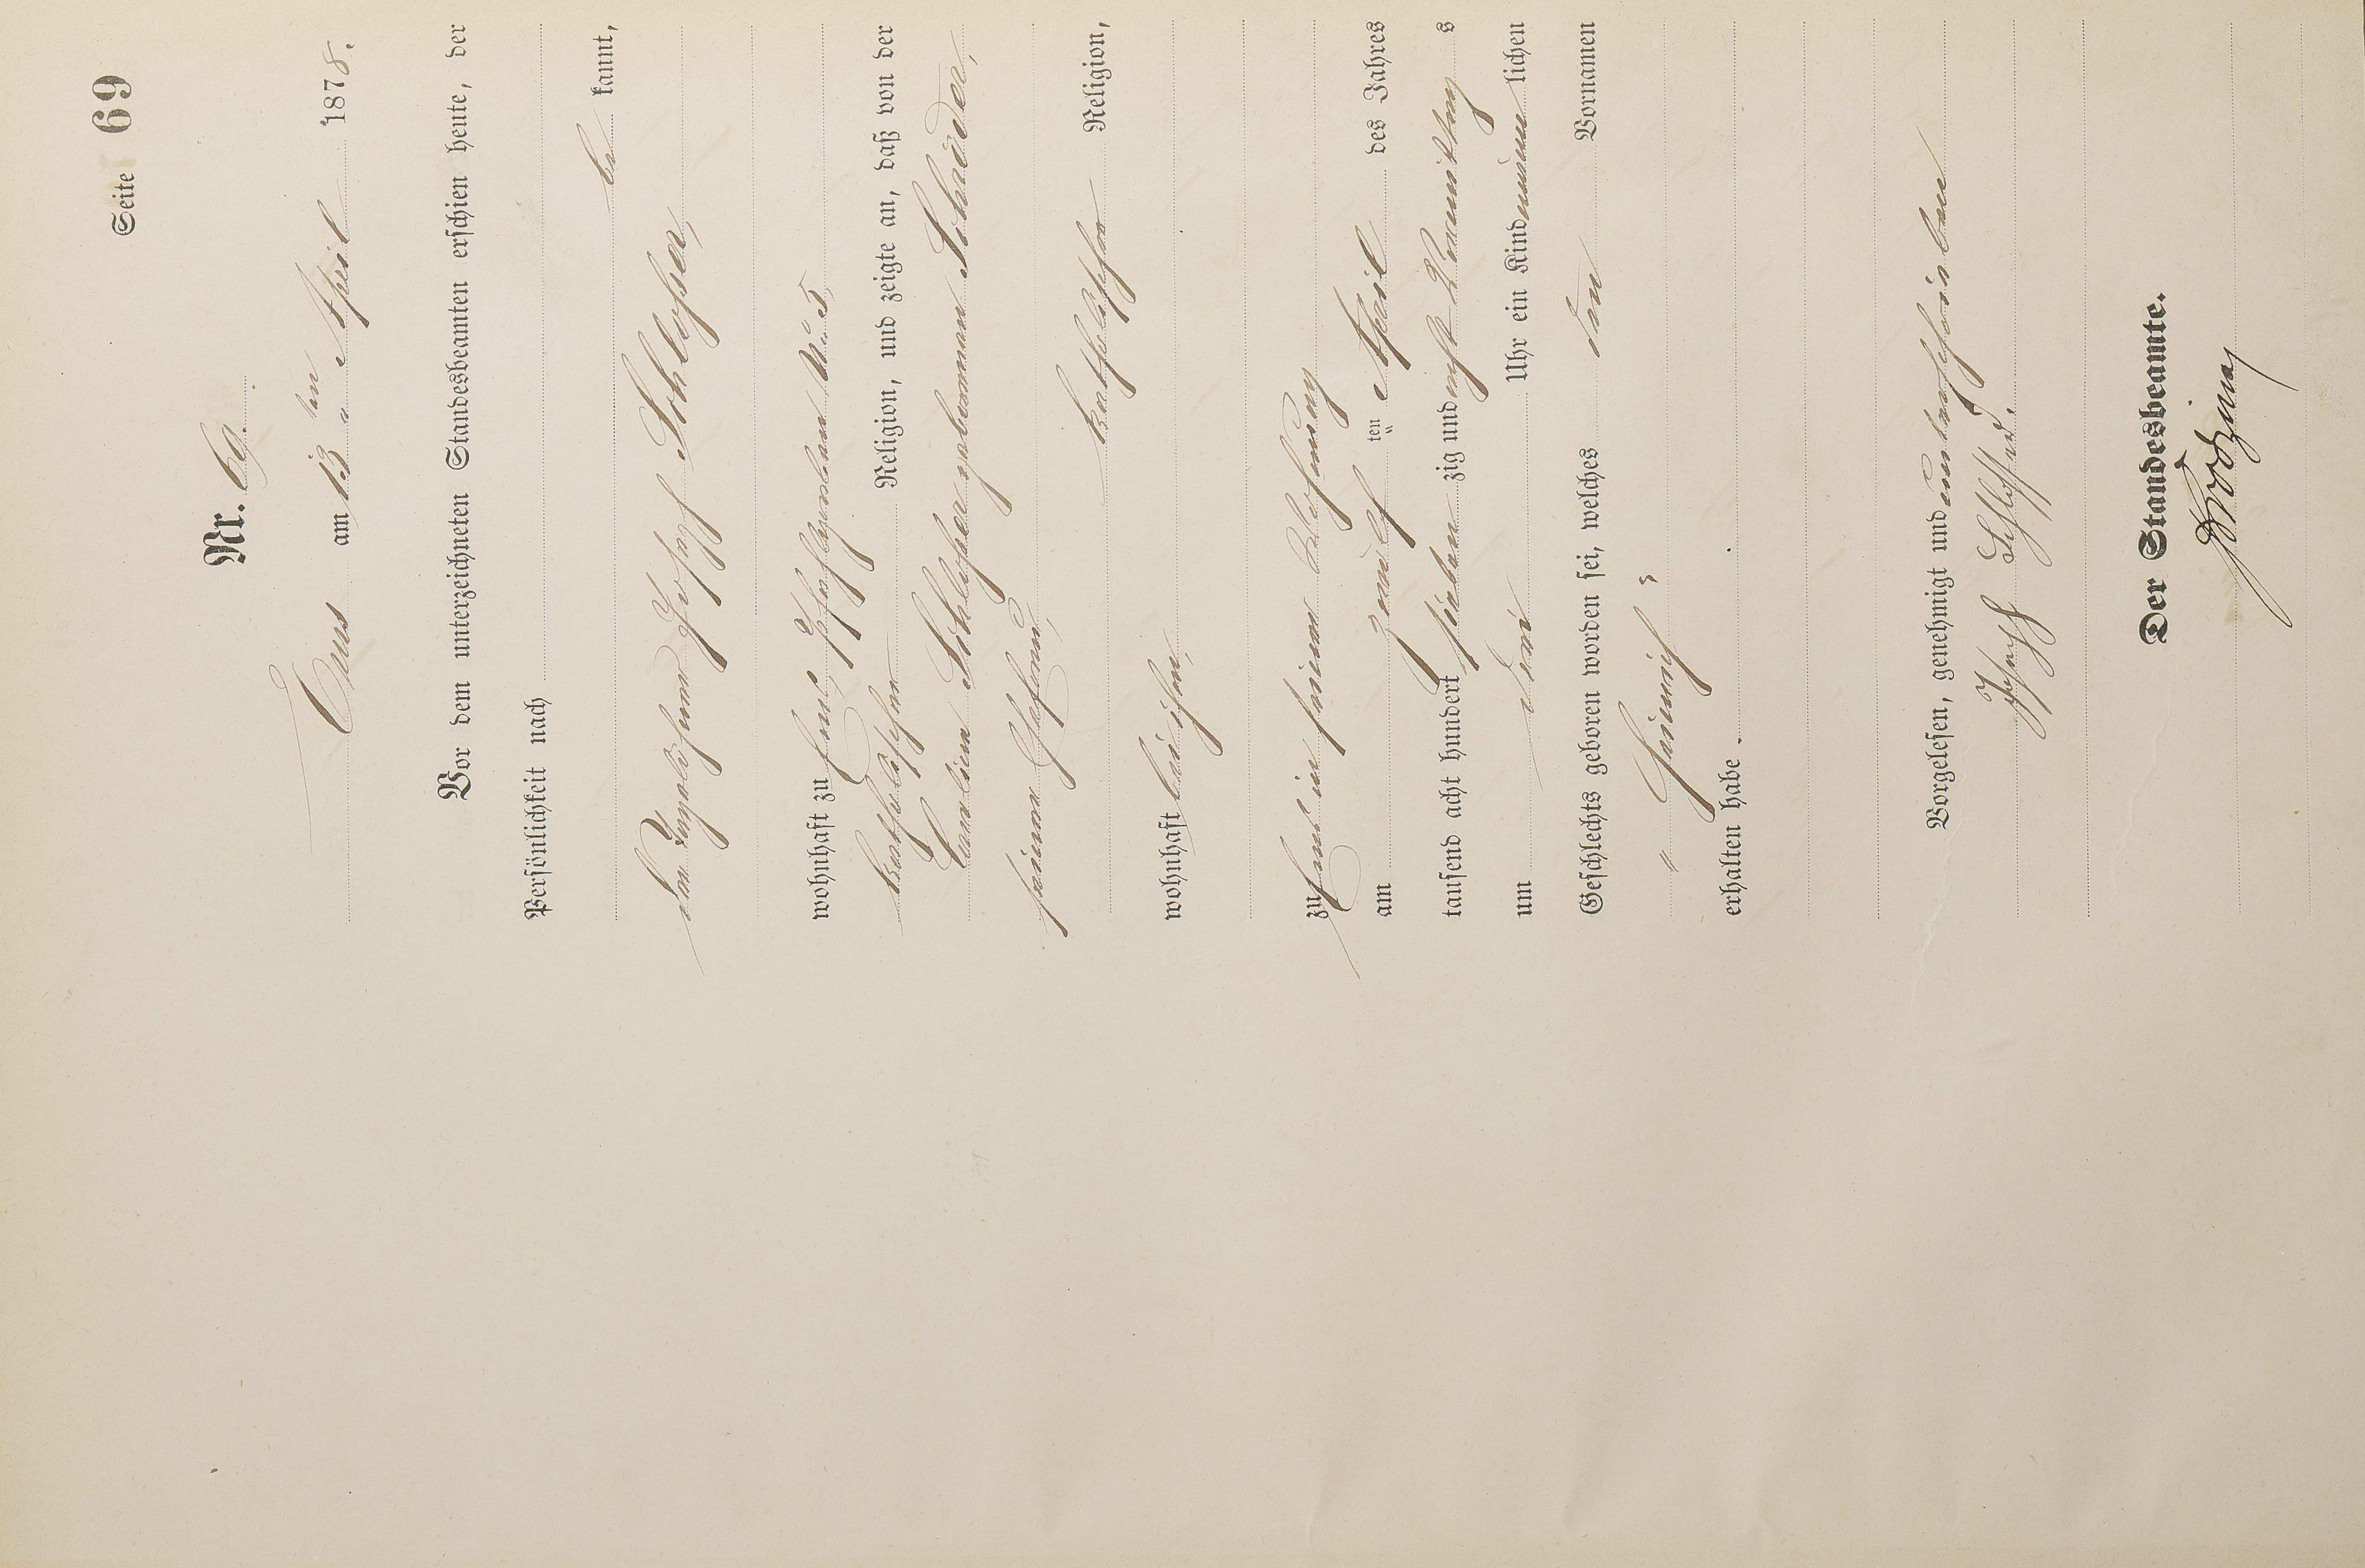 Seite 69
Nr. 69.
Ems am 13 ten April 1878.
Vor dem unterzeichneten Standesbeamten erschien heute, der
Persönlichkeit nach
be kannt,
der Joseph Schlosser,
wohnhaft zu Ems,
katholischer Religion, und zeigte an, daß von der
Schlosser geborenen Schröder,
seiner Ehefrau,
katholischer Religion,
wohnhaft bei ihm,
zu Ems in seiner Wohnung
am zwölf ten April des Jahres
tausend acht hundert sieben zig und acht Vormittag s
um drei Uhr ein Kind männ lichen
Geschlechts geboren worden sei, welches den Vornamen
Heinrich
erhalten habe.
Vorgelesen, genehmigt und unterschrieben
Joseph Schlosser.
Der Standesbeamte.